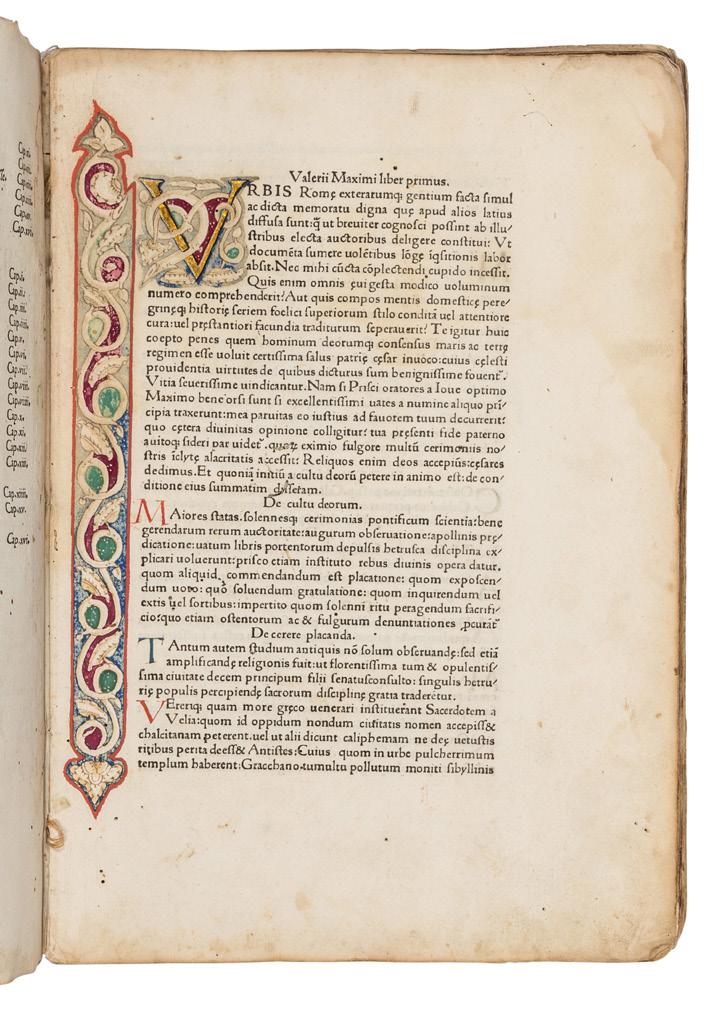 Cap.ii.
Cap.iii.
Cap.xvi.
Cap.i.
Cap.ii.
Cap.iii.
Cap.iiii.
Cap.v.
Cap.vi.
Cap.vii.
Cap.viii.
Cap.x.
Cap.xi.
Cap.xii.
Cap.xiii.
Cap.xiiii.
Cap.xv.
Cap.xvi.
Valerii Maximi liber primus.
VRBIS Romę exterarumq; gentium facta simul
ac dicta memoratu digna quę apud alios latius
diffusa sunt: q̃ ut breuiter cognosci possint ab illu/
stribus electa auctoribus deligere constitui: Vt
documẽta sumere uolẽtibus lõgę iq̃sitionis labor
absit. Nec mihi cũcta cõplectendi cupido incessit.
Quis enim omnis ęui gesta modico uoluminum
numero comprehenderit? Aut quis compos mentis domesticę pere/
grinęq; historię seriem foelici superiorum stilo conditã uel attentiore
cura: uel pręstantiori facundia traditurum seperauerit? Te igitur huic
coepto penes quem hominum deorumq; consensus maris ac terrę
regimen esse uoluit certissima salus patrię cęsar inuoco: cuius cęlesti
prouidentia uirtutes de quibus dicturus sum benignissime fouent̃.
Vitia seuerissime uindicantur. Nam si Prisci oratores a Ioue optimo
Maximo bene orsi sunt si excellentissimi uates a numine aliquo prĩ/
cipia traxerunt: mea paruitas eo iustius ad fauorem tuum decurrerit:
quo cętera diuinitas opinione colligitur: tua pręsenti fide paterno
auitoq; sideri par uidet̃. quoꝝ eximio fulgore multũ cerimoniis no/
stris iclytę alacritatis accessit: Reliquos enim deos accepĩus: cęsares
dedimus. Et quoniã initiũ a cultu deorũ petere in animo est: de con/
ditione eius summatim disseram.
De cultu deorum.
MAiores statas. solennesq; cerimonias pontificum scientia: bene
gerendarum rerum auctoritate: augurum obseruatione: apollinis prę/
dicatione: uatum libris portentorum depulsis hetrusca disciplina ex/
plicari uoluerunt: prisco etiam instituto rebus diuinis opera datur.
quom aliquid commendandum est placatione: quom exposcen/
dum uoto: quõ soluendum gratulatione: quom inquirendum uel
extis uel sortibus: impertito quom solenni ritu peragendum sacrifi/
cio: quo etiam ostentorum ac & fulgurum denuntiationes ꝓcurãt̃
De cerere placanda.
TAntum autem studium antiquis nõ solum obseruandę: sed etiã
amplificandę religionis fuit: ut florentissima tum & opulentis/
sima ciuitate decem principum filii senatusconsulto: singulis hetru/
rię populis percipiendę sacrorum disciplinę gratia traderẽtur.
VEreriq; quam more gręco uenerari instituerant Sacerdotem a
Velia: quom id oppidum nondum ciuitatis nomen accepiss&
chalcitanam peterent. uel ut alii dicunt caliphemam ne deę uetustis
ritibus perita deess& Antistes: Cuius quom in urbe pulcherrimum
templum haberent: Gracchano tumultu pollutum moniti sibyllinis